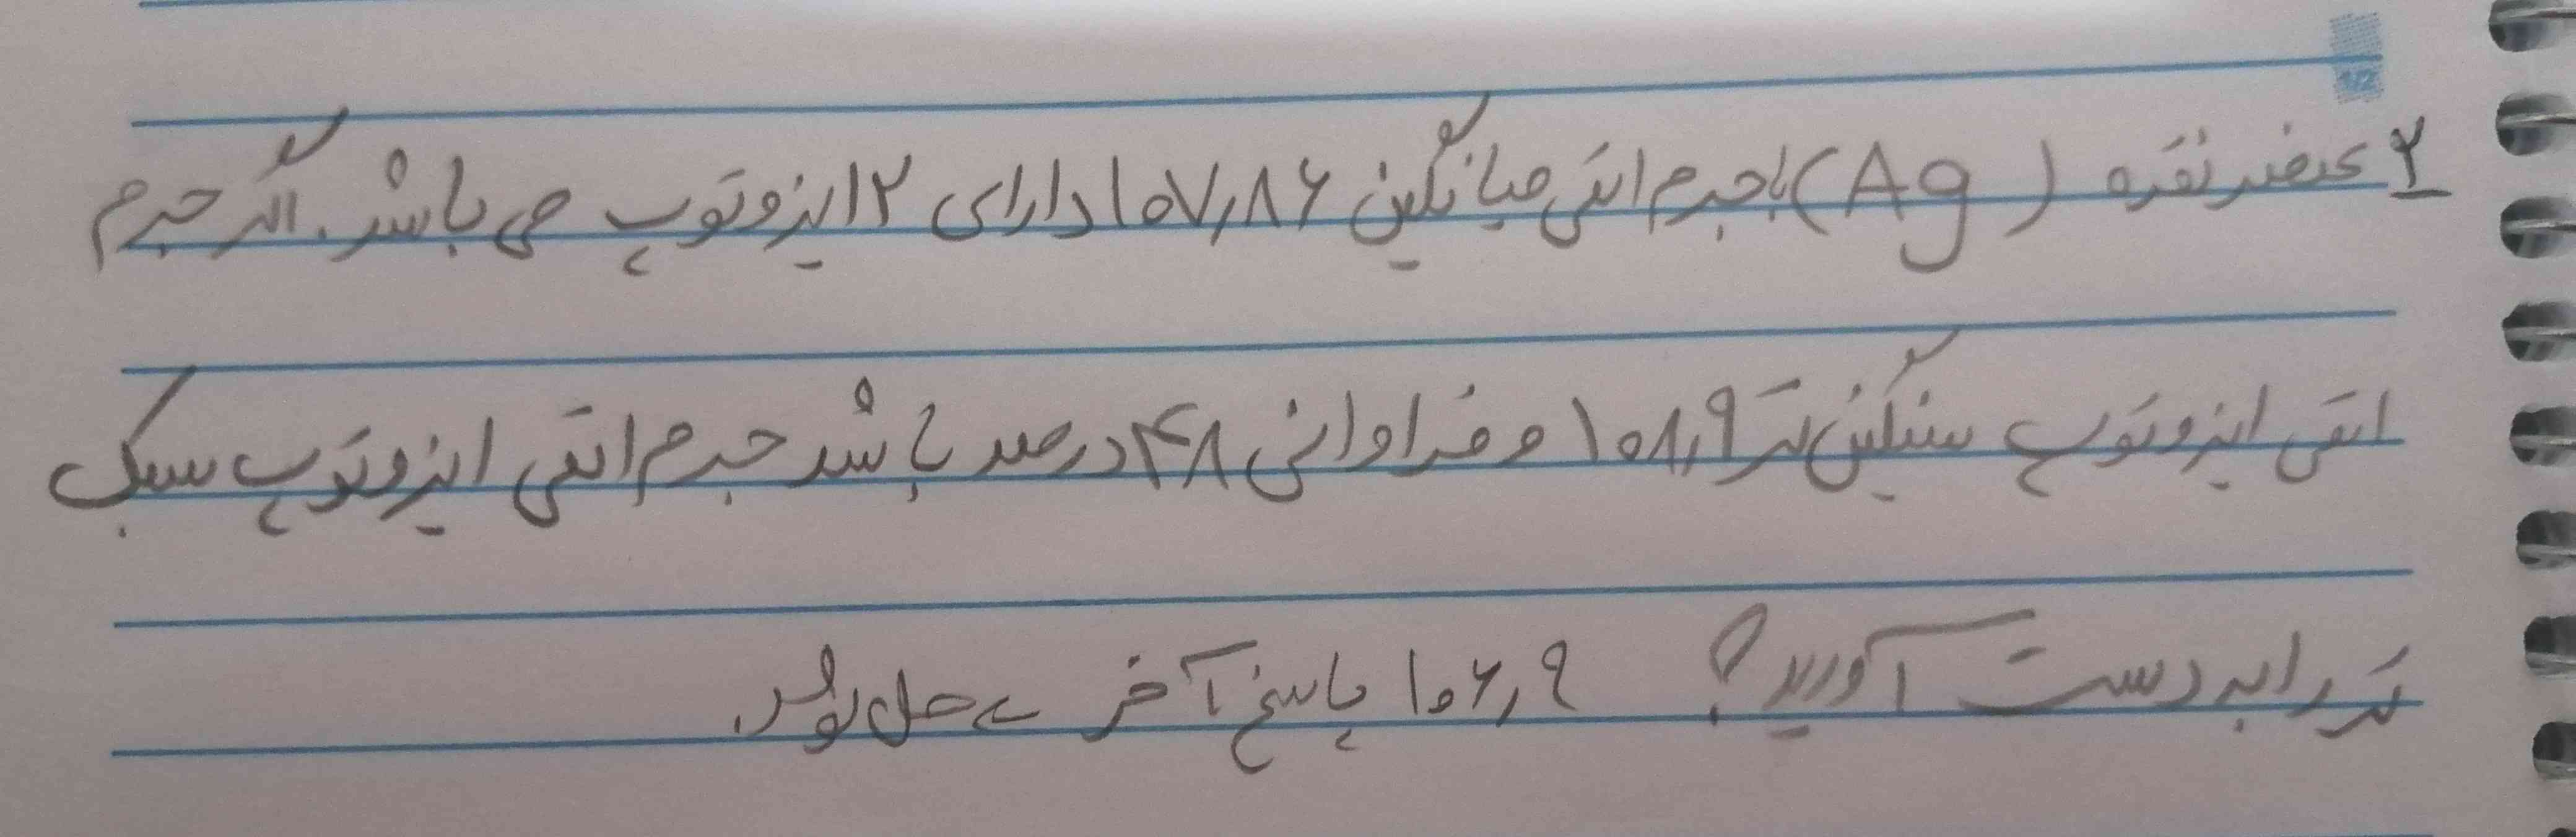 ۲ عنصر نقره (Ag) با جرم اتمی میانگین ۱۰۷,۸۶ دارای ۲ ایزوتوپ می باشد. اگر جرم
اتمی ایزوتوپ سنگین تر ۱۰۸,۹ و فراوانی ۴۸ درصد باشد جرم اتمی ایزوتوپ سبک
تر را به دست آورید؟ ۱۰۶,۹ پاسخ آخر حل شود.